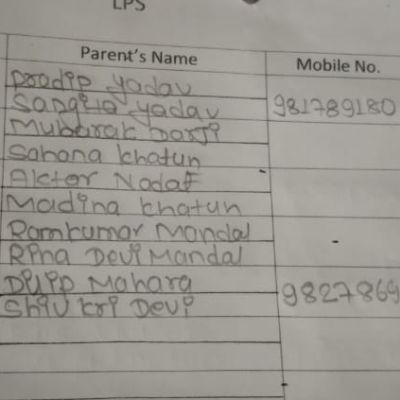 LPS
Parent's Name Mobile No.
Pradip yadav
Sangita yadav 981789180
Mubarak Darji
Sahana khatun
Aktar Nadaf
Madina khatun
Ramkumar Mandal
Rina Devi Mandal
Dilip Mahara 9827869
Shiv kri Devi